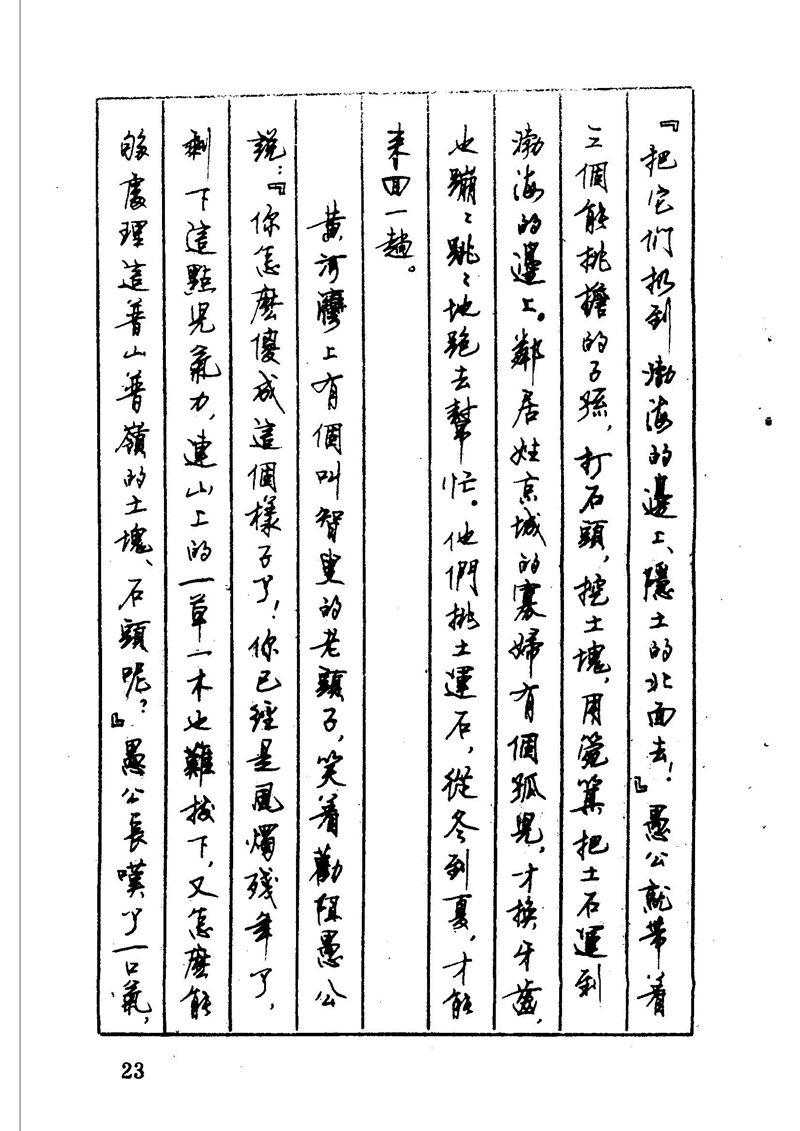 『把它们扔到渤海的邊上、隱土的北面去！』愚公就帶着
三個能挑擔的子孫，打石頭，挖土塊，用箢箕把土石運到
渤海的邊上。鄰居姓京城的寡婦有個孤兒，才換牙齒，
也蹦〻跳〻地跑去幫忙。他們挑土運石，從冬到夏，才能
来回一趟。
黃河灣上有個叫智叟的老頭子，笑着勸阻愚公
說：『你怎麽傻成這個樣子了！你已經是風燭残年了，
剩下這點兒氣力，連山上的一草一木也難拔下，又怎麽能
够處理這普山普嶺的土塊、石頭呢？』愚公長嘆了一口氣，
23